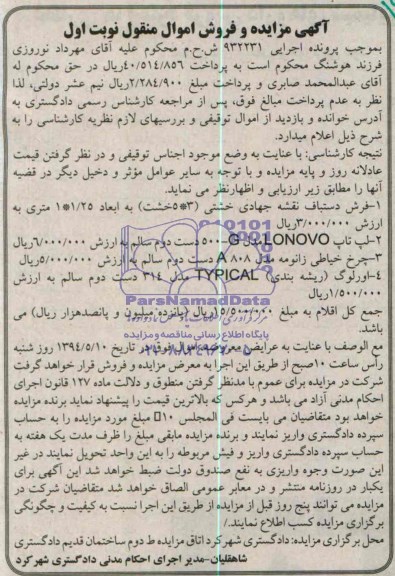 آگهی مزایده و فروش اموال منقول نوبت اول
بموجب پرونده اجرایی ۹۳۲۲۳۱ ش.ح.م محکوم علیه آقای مهرداد نوروزی
فرزند هوشنگ محکوم است به پرداخت ۴۰/۵۱۴/۸۵۶ریال در حق محکوم له
آقای عبدالمحمد صابری و پرداخت مبلغ ۲/۲۸۴/۹۰۰ریال نیم عشر دولتی، لذا
نظر به عدم پرداخت مبالغ فوق، پس از مراجعه کارشناس رسمی دادگستری به
آدرس خوانده و بازدید از اموال توقیفی و بررسیهای لازم نظریه کارشناسی را به
شرح ذیل اعلام میدارد.
نتیجه کارشناسی: با عنایت به وضع موجود اجناس توقیفی و در نظر گرفتن قیمت
عادلانه روز و پایه مزایده و با توجه به سایر عوامل مؤثر و دخیل دیگر در قضیه
آنها را مطابق زیر ارزیابی و اظهارنظر می نماید.
۱-فرش دستباف نقشه جهادی خشتی (۳*۵خشت) به ابعاد ۱/۲۵*۱ متری به
ارزش ۳/۰۰۰/۰۰۰ریال
۲-لپ تاپ LONOVO مدل G-۵۰۰ دست دوم سالم به ارزش ۶/۰۰۰/۰۰۰ریال
۳-چرخ خیاطی زانومه مدل A ۸۰۸ دست دوم سالم به ارزش ۵/۰۰۰/۰۰۰ریال
۴-اورلوگ (ریشه بندی) TYPICAL مدل ۳۱۴ دست دوم سالم به ارزش
۱/۵۰۰/۰۰۰ریال
جمع کل اقلام به مبلغ ۱۵/۵۰۰/۰۰۰ریال (پانزده میلیون و پانصدهزار ریال) می
باشد.
مع الوصف با عنایت به عرایض معروضه اموال فوق در تاریخ ۱۳۹۴/۵/۱۰ روز شنبه
رأس ساعت ۱۰صبح از طریق این اجرا به معرض مزایده و فروش قرار خواهد گرفت
شرکت در مزایده برای عموم با مدنظر گرفتن منطوق و دلالت ماده ۱۲۷ قانون اجرای
احکام مدنی آزاد می باشد و هرکس که بالاترین قیمت را پیشنهاد نماید برنده مزایده
خواهد بود متقاضیان می بایست فی المجلس ۱۰ مبلغ مورد مزایده را به حساب
سپرده دادگستری واریز نمایند و برنده مزایده مابقی مبلغ را ظرف مدت یک هفته به
حساب سپرده دادگستری واریز و فیش مربوطه را به این واحد تحویل نمایند در غیر
این صورت وجوه واریزی به نفع صندوق دولت ضبط خواهد شد این آگهی برای
یکبار در روزنامه منتشر و در معابر عمومی الصاق خواهد شد متقاضیان شرکت در
مزایده می توانند پنج روز قبل از مزایده از طریق این اجرا نسبت به کیفیت و چگونگی
برگزاری مزایده کسب اطلاع نمایند./
محل برگزاری مزایده: دادگستری شهرکرد اتاق مزایده ط دوم ساختمان قدیم دادگستری
شاهقلیان-مدیر اجرای احکام مدنی دادگستری شهرکرد
ParsNamadData
پایگاه اطلاع رسانی مناقصه و مزایده